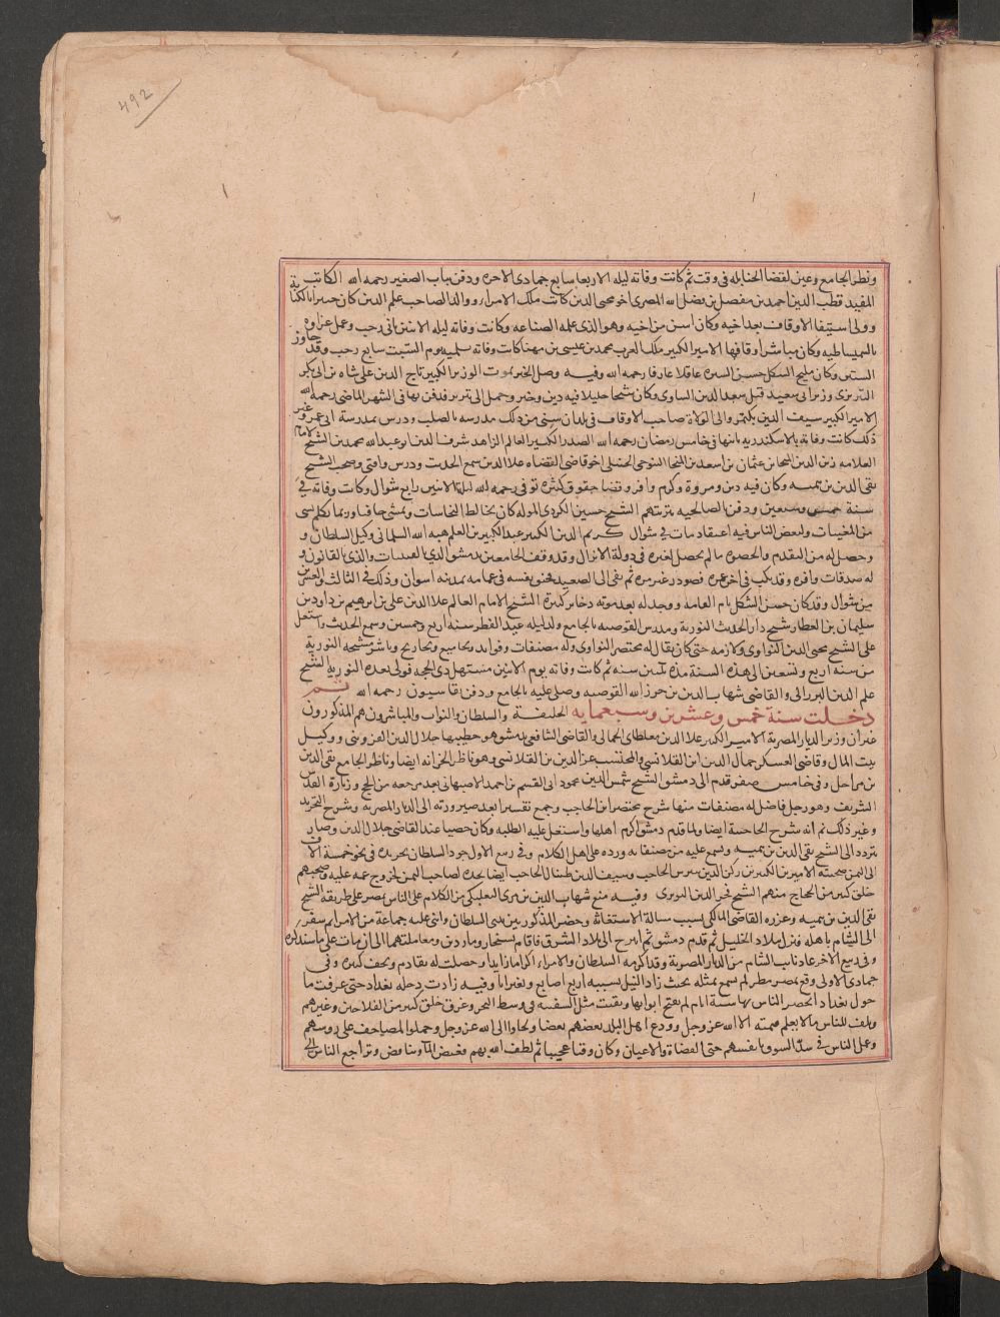 492
ونظر الجامع وعين لقضا الحنابله فى وقت ثم كانت وفاته ليله الاربعا سابع جمادى الاخره ودفن بباب الصغير رحمه الله الكاتب
المفيد قطب الدين احمد بن مفضل بن فضل الله المصرى اخو محيى الدين كاتب ملك الامرا ووالد الصاحب علم الدين كان خبيرا بالكتابة
وولى استيفا الاوقاف بعد اخيه وكان اسن من اخيه وهو الذى علمه الصناعه وكانت وفاته ليله الاثنين ثانى رجب وعمل عزاوه
بالسميساطيه وكان مباشرا وقافها الامير الكبير ملك العرب محمد بن عيسى بن مهنا كانت وفاته بسلميه يوم السبت سابع رجب وقد جاوز
الستين وكان مليح الشكل حسن السيره عاقلا عارفا رحمه الله وفيه وصل الخبر بموت الوزير الكبير تاج الدين على شاه بن ابى بكر
التبريزى وزير ابى سعيد قتل سعد الدين الساوى وكان شيخا جليلا فيه دين وخير وحمل الى تبريز فدفن بها فى الشهر الماضى رحمه الله
الامير الكبير سيف الدين بكتمر والى الولاة صاحب الاوقاف فى بلدان شتى من ذلك مدرسه بالصلب ودرس بمدرسة ابى عمر وغير
ذلك كانت وفاته بالاسكندريه نايبها فى خامس رمضان رحمه الله الصدر الكبير العالم الزاهد شرف الدين ابو عبد الله محمد بن الشيخ الامام
العلامه زين الدين المنجا بن عثمان بن اسعد بن المنجا التنوخى الحنبلى اخو قاضى القضاه علا الدين سمع الحديث ودرس وافتى وصحب الشيخ
تقى الدين بن تيميه وكان فيه دين ومروة وكرم وافر وقضا حقوق كثيره توفى رحمه الله ليلة الاثنين رابع شوال وكانت وفاته فى
سنة خمس وسبعين ودفن بالصالحيه بتربتهم الشيخ حسين الكردى الموله كان يخالط النجاسات ويمشى حافيا وربما تكلم بشى
من المغيبات ولبعض الناس فيه اعتقاد مات فى شوال كريم الدين الكبير عبد الكبير بن العلم هبه الله السلمانى وكيل السلطان و
وحصل له من التقدم والحضوه ما لم يحصل لغيره فى دولة الاتراك وقد وقف الجامعين بدمشق الذى بالقبيبات والذى بالقابون و
له صدقات وافره وقد نكب فى اخر عمره فصودر غير مره ثم نفى الى الصعيد فخنق نفسه فى عمامه بمدينه اسوان وذلك فى الثالث والعشرين
من شوال وقد كان حسن الشكل تام القامه ووجد له بعد موته ذخاير كثيرة الشيخ الامام العالم علا الدين على بن ابرهيم بن داود بن
سليمان بن العطار شيخ دار الحديث النوريه ومدرس القوصيه بالجامع ولد ليله عيد الفطر سنه اربع وخمسين وسمع الحديث واشتغل
على الشيخ محيى الدين النواوى ولازمه حتى كان يقال له مختصر النواوى وله مصنفات وفوايد ومجاميع وتخاريج وباشر مشيخه النوريه
من سنه اربع وتسعين الى هذه السنة مدة ثلثين سنه ثم كانت وفاته يوم الاثنين مستهل ذى الحجه فولى بعده النوريه الشيخ
علم الدين البرزالى والقاضى شهاب الدين بن حرز الله القوصيه وصلى عليه بالجامع ودفن قاسيون رحمه الله ثم
دخلت سنة خمس وعشرين وسبعمايه الخليفة والسلطان والنواب والمباشرون هم المذكورون
غير ان وزير الديار المصرية الامير الكبير علا الدين مغلطاى الجمالى والقاضى الشافعى بدمشق هو خطيبها جلال الدين القزوينى ووكيل
بيت المال وقاضى العسكر جمال الدين ابن القلانسى والمحتسب عز الدين بن القلانسى وهو ناظر الخزانه ايضا وناظر الجامع تقى الدين
بن مراحل وفى خامس صفر قدم الى دمشق الشيخ شمس الدين محمود ابى القسم بن احمد الاصبهانى بعد مرجعه من الحج وزيارة القدس
الشريف وهو رجل فاضل له مصنفات منها شرح مختصر ابن الحاجب وجمع تفسيرا بعد صيرورته الى الديار المصريه وشرح التجريد
وغير ذلك ثم انه شرح الحاجبية ايضا ولما قدم دمشق اكرم اهلها واشتغل عليه الطلبه وكان حصيا عند القاضى جلال الدين وصار
يتردد الى الشيخ تقى الدين بن تيميه وسمع عليه من مصنفاته ورده على اهل الكلام وفى ربيع الاول جرد السلطان تجريده فى نحو خمسة الاف
الى اليمن صحبته الاميرين الكبيرين ركن الدين بيبرس الحاجب وسيف الدين طينال الحاجب ايضا نجدة لصاحب اليمن لخروج عمه عليه وصحبهم
خلق كثير من الحجاج منهم الشيخ فخر الدين النويرى وفيه منع شهاب الدين بن مرى البعلبكى من الكلام على الناس بمصر على طريقه الشيخ
تقى الدين بن تيميه وعزره القاضى المالكى بسبب مسالة الاستغاثه وحضر المذكور بين يدى السلطان واثنى عليه جماعة من الامرا ثم سفر
الى الشام باهله فنزل ببلاد الخليل ثم قدم دمشق ثم انزح الى بلاد الشرق فاقام بسنجار وماردين ومعاملتهما الى ان مات على ما سنذكره
وفى ربيع الاخر عاد نايب الشام من الديار المصرية وقد اكرمه السلطان والامراء اكراما زايدا وحصلت له تقادم وتحف كثيره وفى
جمادى الاولى وقع بمصر مطر لم يسمع بمثله بحيث زاد النيل بسببه اربع اصابع وتغير اياما وفيه زادت دجله بغداد حتى غرقت ما
حول بغداد وانحصر الناس بها ستة ايام لم تفتح ابوابها وبقيت مثل السفينه فى وسط البحر وغرق خلق كثير من الفلاحين وغيرهم
وتلف للناس ما لا يعلم قيمته الا الله عز وجل وودع اهل البلد بعضهم بعضا ولجاوا الى الله عز وجل وحملوا المصاحف على روسهم
وعمل الناس فى سد السوق بانفسهم حتى القضاة والاعيان وكان وقتا عجيبا ثم لطف الله بهم وغيض المآ وتناقص وتراجع الناس الى